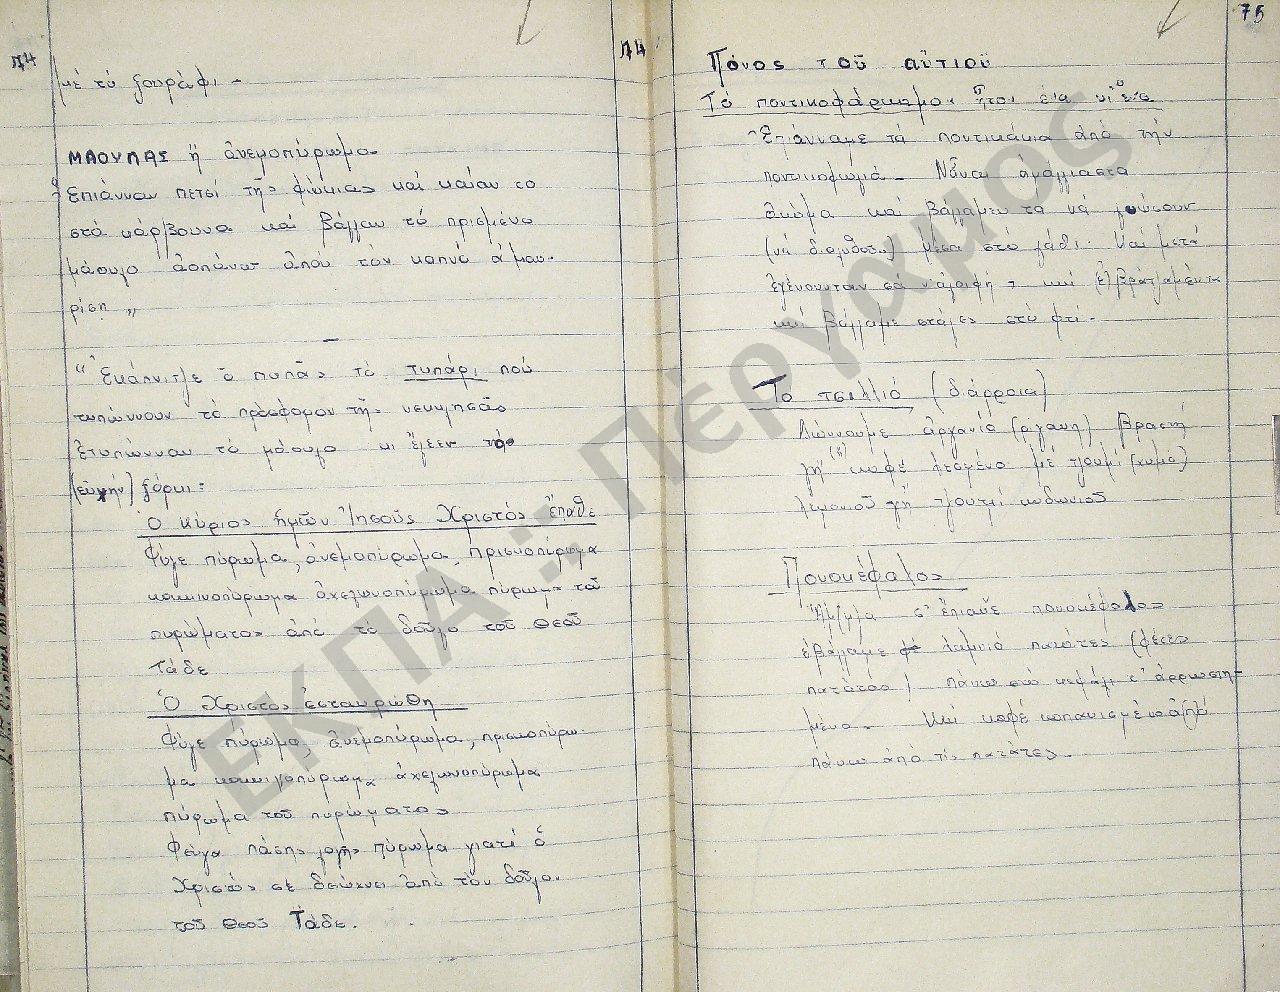 74
με το ξουράφι -
ΜΑΟΥΛΑΣ ή ἀνεμοπύρωμα
Επιάνναν πετσί τῆς φώκιας καί καίαν το
στά κάρβουνα καί βάλλαν τό πρισμένο
μάουλο ἀσπάνω ἀπού τόν καπνό
ρίση „
“Ἐκάπνιτζε ὁ παπᾶς τό τυπάρι πού
τυπώννουν τό πρόσφορον τῆς
ἐτυπώνναν τό μάουλο κι ἔλεεν
(εὐχήν) ξόρκι:
Ὁ Κύριος ἡμῶν Ἰησοῦς Χριστός ἔπαθε
Φύγε πύρωμα, ἀνεμοπύρωμα, πρισκοπύρωμα
κοκκινοπύρωμα ἀχελωνοπύρωμα πύρωμα τοῦ
πυρώματος ἀπό τό δοῦλο τοῦ Θεοῦ
Τάδε
Ὁ Χριστός ἐσταυρώθη
Φύγε πύρωμα, ἀνεμοπύρωμα, πρισκοπύρω-
μα κοκκινοπύρωμα ἀχελωνοπύρωμα
πύρωμα τοῦ πυρώματος
Φεύγα πάσης λογῆς πύρωμα γιατί ὁ
Χριστός σέ διώχνει ἀπό τόν δοῦλο
τοῦ Θεοῦ Τάδε.
74
75
Πόνος τοῦ αὐτιοῦ
Τό ποντικοφάρμακο ἦτο
Ἐπιάνναμε τά ποντικάκια ἀπό τήν
ποντικοφωλιά. Νἆναι ἀμάλλιαστα
ἀκόμα καί βάλλαμέν τα νά λυώσουν
(νά διαλυθοῦν) μέσα στό λάδι. Καί μετά
ἐγένουνταν σά ἀλοιφή καί
καί βάλλαμε στάλες στό φτί.
Το τσιλλιό (διάρροια)
Διώννουμε ἀργανιό (ρίγανη) βραστή
γή καφέ μέ ζουμί (χυμό)
λεμονιοῦ γή ζουμί κυδωνιοῦ
Πονοκέφαλος
Ἅμα σ' ἔπιανε πονοκέφαλος
ἐβάλλαμε λαμνιό πατάτες (φέτες
πατάτας) πάνω στό κεφάλι τ' ἀρρωστη-
μένο. Καί καφέ κοπανισμένο
πάνω ἀπό τίς πατάτες.
ΕΚΠΑ :: Πέργαμος